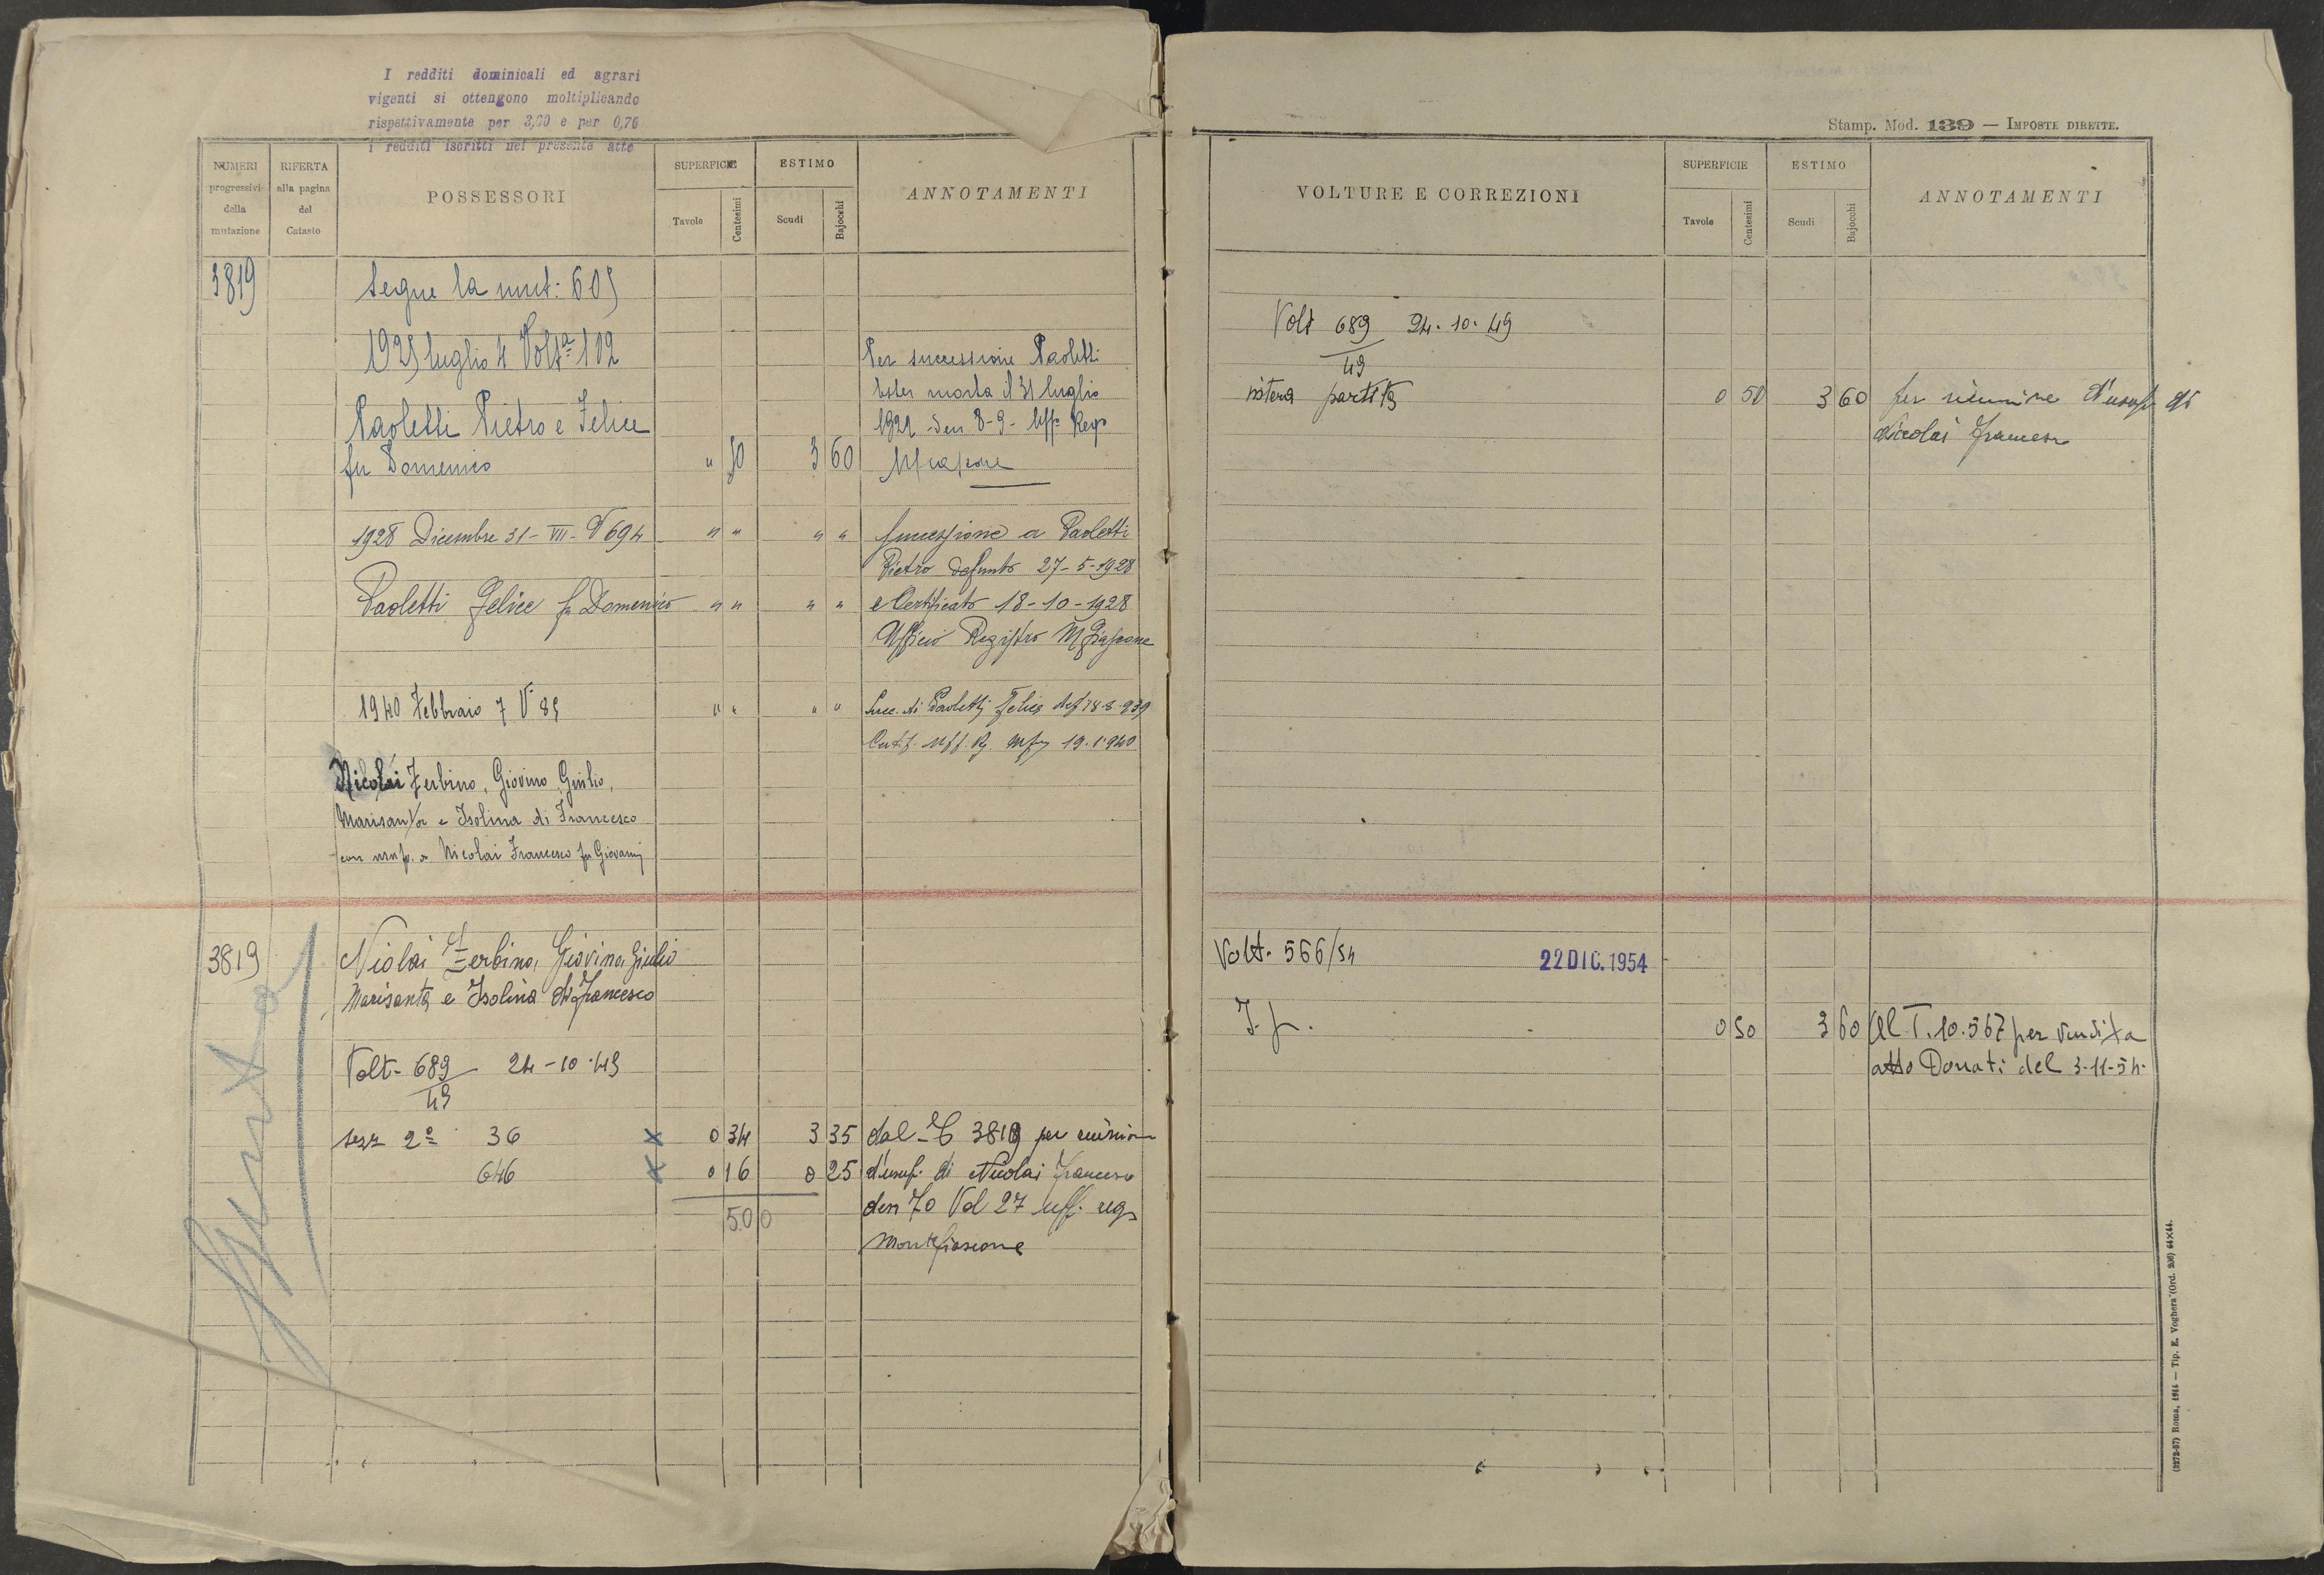 I redditi dominicali ed agrari
vigenti si ottengono moltiplicando
rispettivamente per 3,60 e per 0,76
i redditi iscritti nel presente atto
NUMERI
progressivi
della
mutazione
RIFERTA
alla pagina
del
Catasto
POSSESSORI
SUPERFICIE
Tavole
Centesimi
ESTIMO
Scudi
Bajocchi
ANNOTAMENTI
3819
Segue la mut: 605
1925 luglio 4 Volt.a 112
Per successione Paoletti
Ester morta il 31 luglio
Paoletti Pietro e Felice
den 8-9- Uff. Reg.
fu Domenico " 50 3 60
1928 Dicembre 31-VII-V 694 " " " " successione a Paoletti
Pietro defunto 27-5-1928
Paoletti Felice fu Domenico " " " " e Certificato 18-10-1928
Ufficio Registro Mfiascone
1940 Febbraio 7 V 85 " " " " Succ. di Paoletti Felice
Certif. Uff. Rg. 19.1.940
Nicolai Zerbino, Giovino, Giulio,
Marisanta e Isolina di Francesco
con usuf. a Nicolai Francesco fu Giovanni
3819
Nicolai Zerbino, Giovino, Giulio
Marisanta e Isolina di Francesco
Volt. 689 24-10-49
49
sez 2a 36 x 0 34 3 35 dal C 3819 per riunione
646 x 0 16 0 25 d'usuf. di Nicolai Francesco
den 70 Vol 27 uff. reg
500
Montefiascone
Spenta
Stamp. Mod. 139 — IMPOSTE DIRETTE.
VOLTURE E CORREZIONI
SUPERFICIE
Tavole
Centesimi
ESTIMO
Scudi
Bajocchi
ANNOTAMENTI
Volt 689 24.10.49
49
intera partita 0 50 3 60 per riunione d'usuf. di
Nicolai Francesco
Volt. 566/54 22 DIC. 1954
I.p. 0 50 3 60 Al T. 10.567 per vendita
atto Donati del 3-11-54.
(3272-57) Roma, 1914 — Tip. E. Voghera (Ord. 206) 64×44.